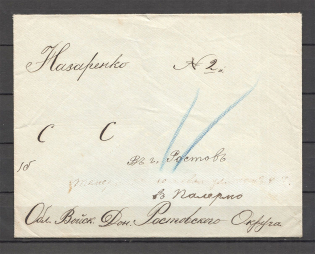 Назаренко № 2.
С С
Въ г. Ростовъ
в Палермо
Обл. Войск. Дон. Ростовского Округа